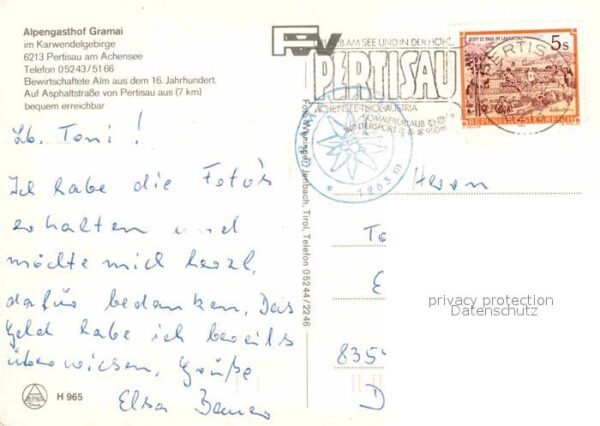 Alpengasthof Gramai
im Karwendelgebirge
6213 Pertisau am Achensee
Telefon 05243/5166
Bewirtschaftete Alm aus dem 16. Jahrhundert.
Auf Asphaltstraße von Pertisau aus (7 km)
bequem erreichbar
Lb. Toni!
Ich habe die Foto's
erhalten und
möchte mich herzl.
dafür bedanken. Das
Geld habe ich bereits
überwiesen. Grüße
Elsa
H 965
Foto Wenninger, Jenbach, Tirol, Telefon 05244/2246
AM SEE UND IN DER HÖH'
PERTISAU
ACHENSEE-TIROL-AUSTRIA
SOMMERURLAUB
WINTERSPORT
PERTISAU
STIFT ST. PAUL IM LAVANTTAL
5 S
REPUBLIK ÖSTERREICH
1263 m
Herrn
To
E
835
D
privacy protection
Datenschutz